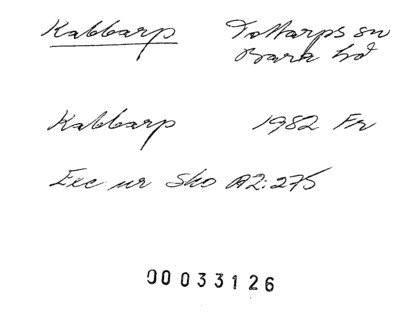 Kabbarp Tottarps sn
Bara hd
Kabbarp 1982 Fr
Exc ur Sko A2:275
00033126